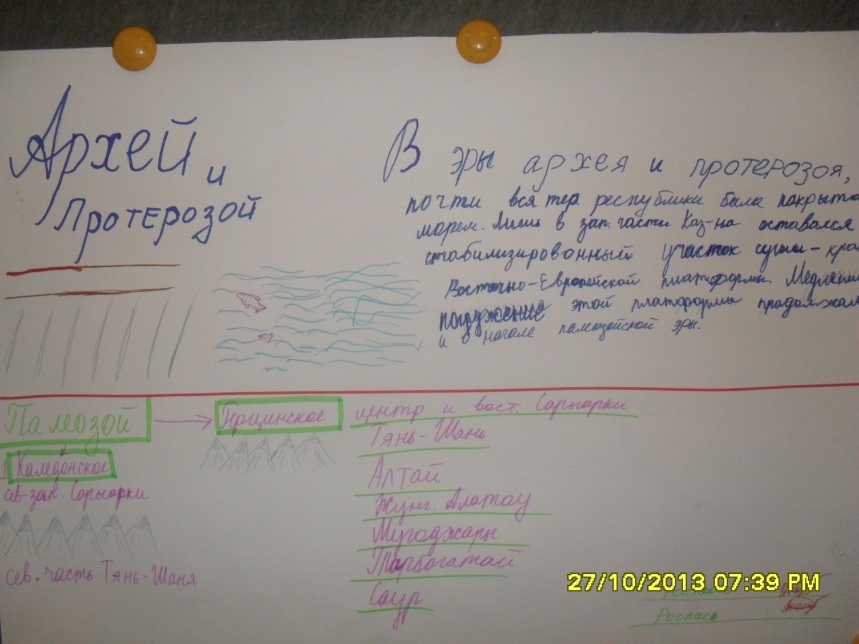 Архей и
Протерозой
В эры архея и протерозоя,
почти вся тер. республики была покрыта
морем. Лишь в зап. части Каз-на оставался
стабилизированный участок суши - кра
Восточно-Европейской платформы. Медленн
погружение этой платформы продолжало
и в начале палеозойской эры.
Палеозой
Герцинское
Каледонское
сев-зап. Сарыарки
сев. часть Тянь-Шаня
центр и вост. Сарыарки
Тянь-Шань
Алтай
Жунг. Алатау
Мугоджары
Тарбагатай
Саур
27/10/2013 07:39 PM
Роспись